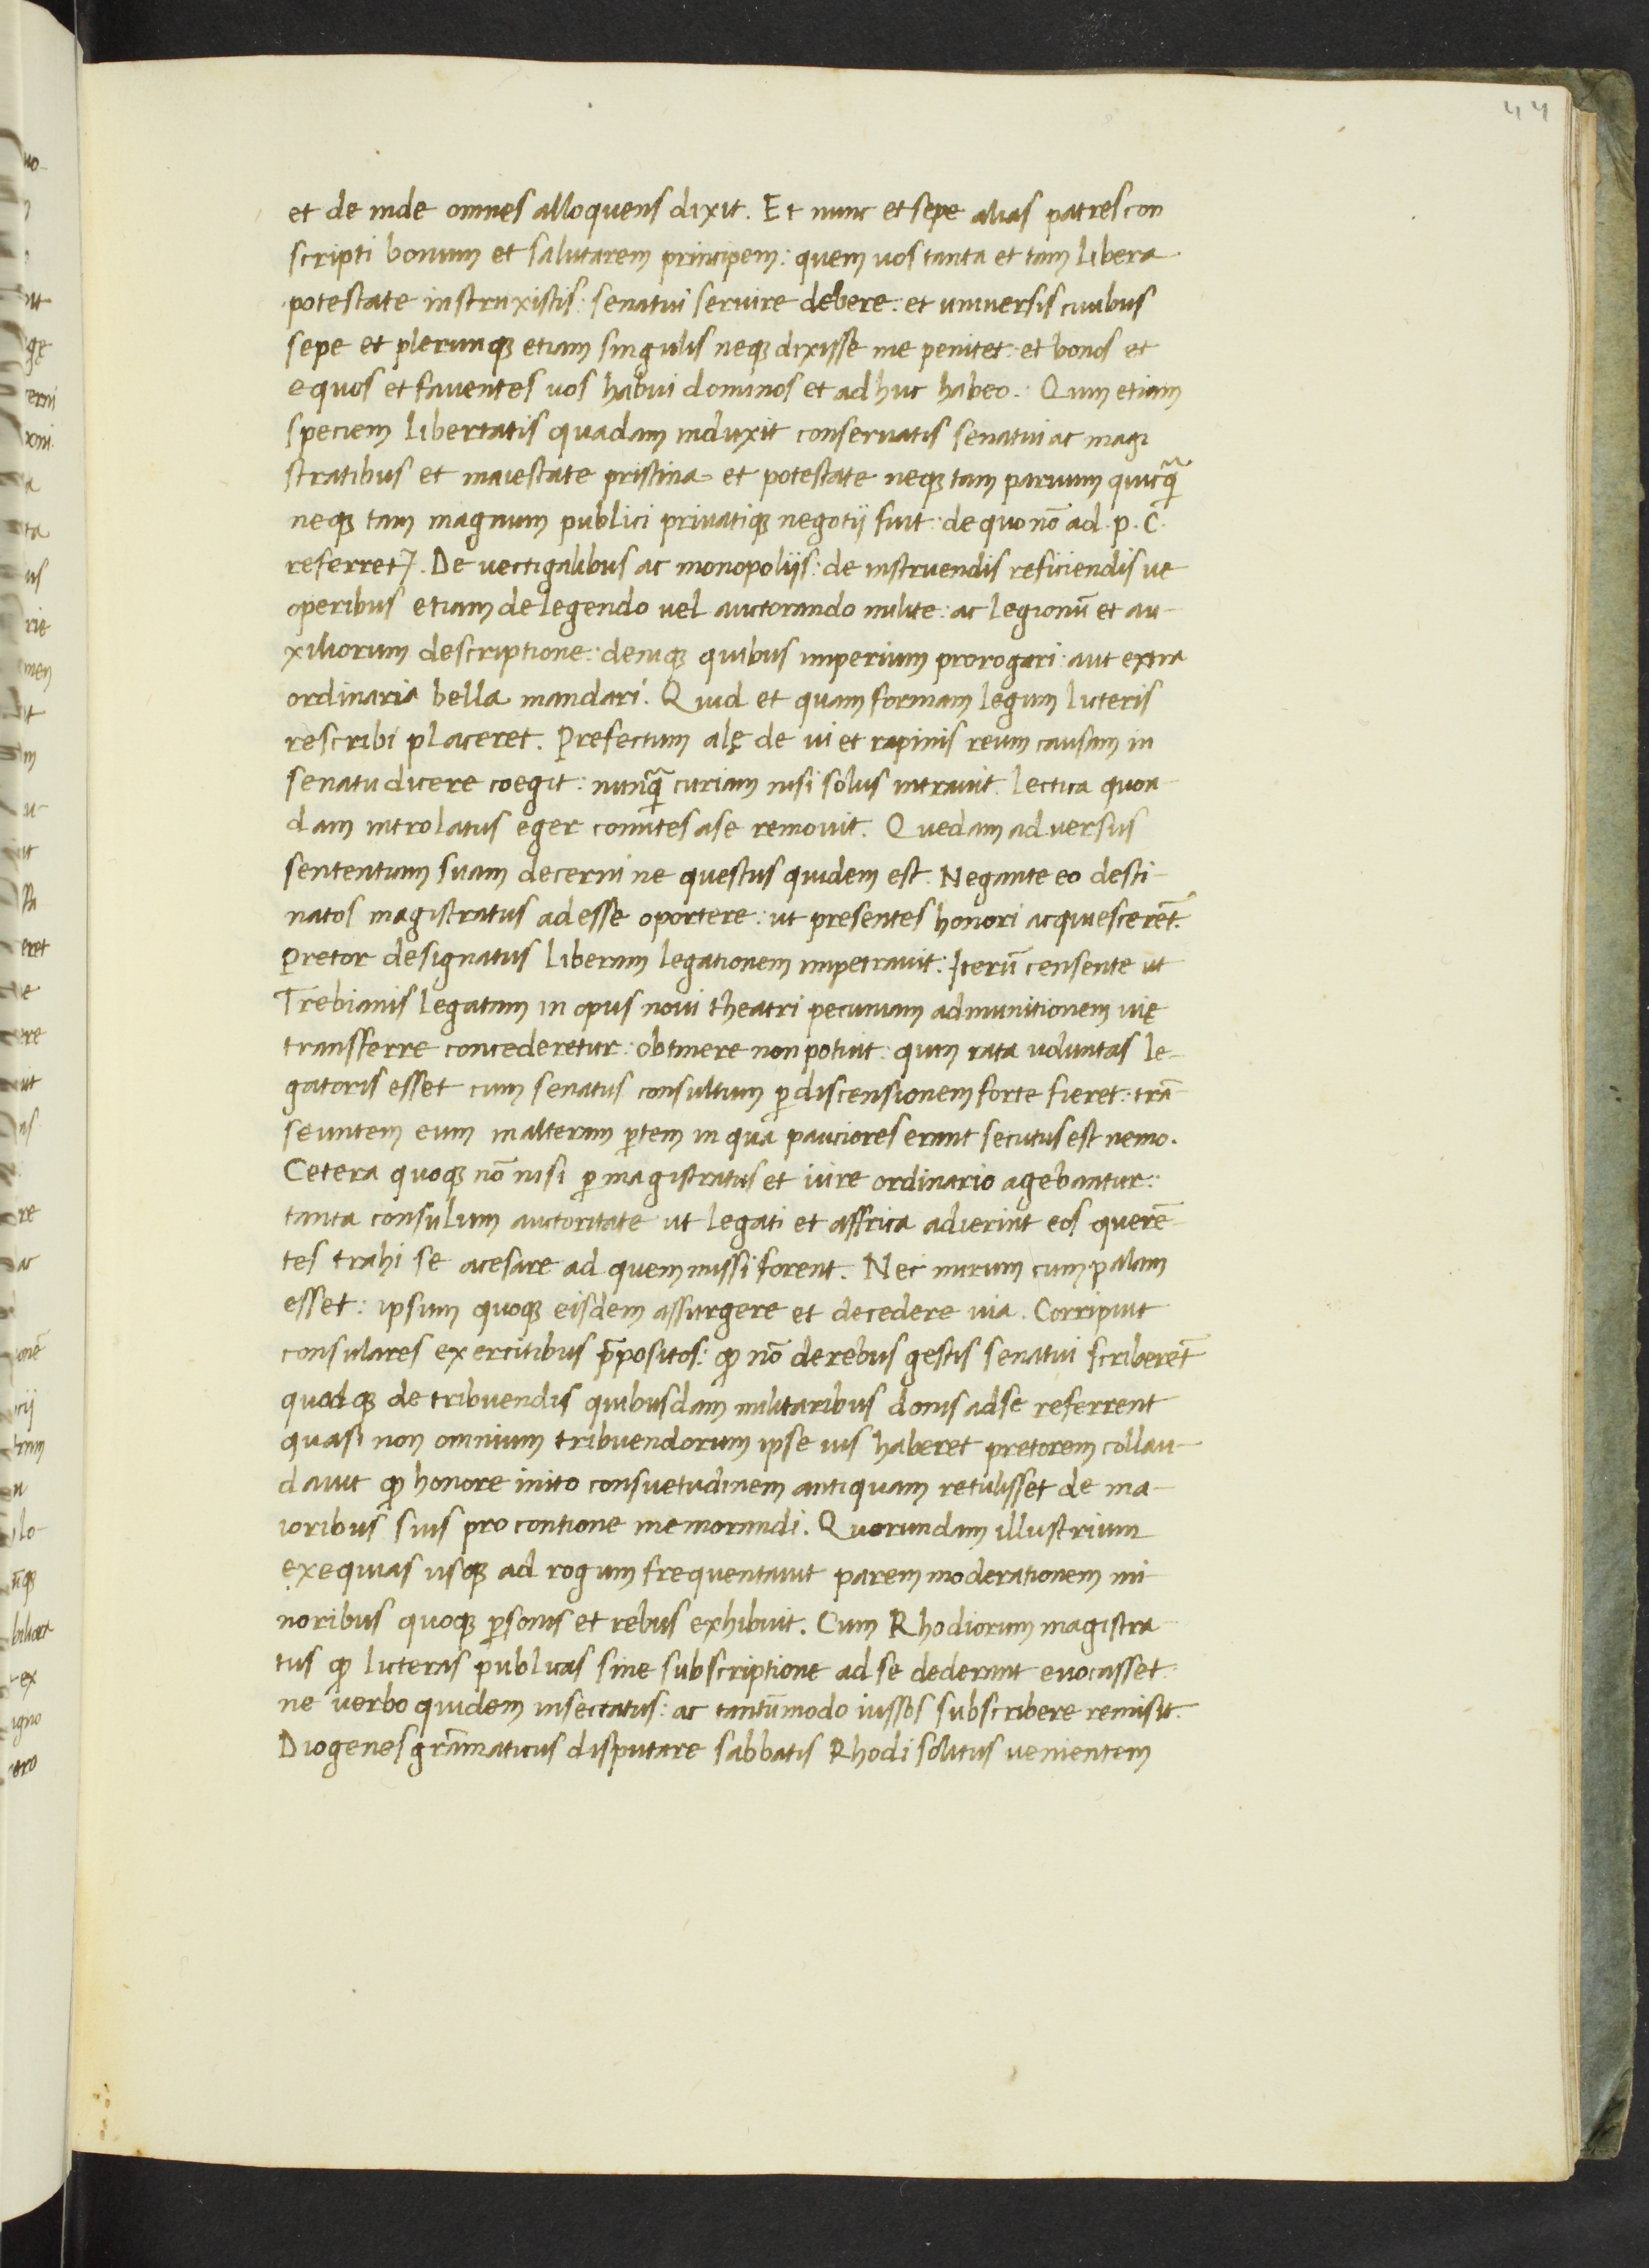 44
et de inde omnes alloquens dixit. Et nunc et sepe alias patres con
scripti bonum et salutarem principem: quem uos tanta et tam libera
potestate instruxistis: senatui seruire debere: et uniuersis ciuibus
sepe et plerunqꝫ etiam singulis neqꝫ dixisse me penitet: et bonos et
equos et fauentes uos habui dominos et adhuc habeo. Quin etiam
speciem libertatis quadam induxit conseruatis senatui ac magi
stratibus et maiestate pristina et potestate neqꝫ tam paruum quicq̃
neqꝫ tam magnum publici priuatiqꝫ negotij fuit: de quo nō ad .p. C̄.
referret⁊. De uectigalibus ac monopolijs: de instruendis reficiendis ue
operibus etiam de legendo uel auctorando milite: ac legionū et au-
xiliorum descriptione: deniqꝫ quibus imperium prorogari: aut extra
ordinaria bella mandari. Quid et quam formam legum litteris
rescribi placeret. Prefectum alę de ui et rapinis reum causam in
senatu dicere coegit: nunq̃ curiam nisi solus intrauit. lectica quon-
dam introlatus eger comites a se remouit. Quedam aduersus
sententiam suam decerni ne questus quidem est. Negante eo desti-
natos magistratus ad esse oportere: ut presentes honori acquiescerēt.
Pretor designatus liberam legationem impetrauit: Iterū censente ut
Trebianis legatam in opus noui theatri pecuniam ad munitionem uię
transferre concederetur: obtinere non potuit: quin rata uoluntas le-
gatoris esset cum senatus consultum ꝑ discensionem forte fieret: trā-
seuntem eum in alteram ꝑtem in qua pauciores erant secutus est nemo.
Cetera quoqꝫ nō nisi ꝑ magistratus et iure ordinario agebantur:
tanta consulum auctoritate ut legati et affrica adierint eos querē-
tes trahi se a cesare ad quem missi forent. Nec mirum cum palam
esset: ipsum quoqꝫ eisdem assurgere et decedere uia. Corripuit
consulares exercitibus p̄positos: ꝙ nō de rebus gestis senatui scriberēt
quodqꝫ de tribuendis quibusdam militaribus donis ad se referrent
quasi non omnium tribuendorum ipse ius haberet pretorem collau-
dauit ꝙ honore inito consuetudinem antiquam retulisset de ma-
ioribus suis pro contione memorandi. Quorundam illustrium
exequias usqꝫ ad rogum frequentauit parem moderationem mi
noribus quoqꝫ ꝑsonis et rebus exhibuit. Cum Rhodiorum magistra-
tus ꝙ litteras publicas sine subscriptione ad se dederant euocasset:
ne uerbo quidem insectatus: ac tantūmodo iussos subscribere remisit.
Diogenes grāmaticus disputare sabbatis Rhodi solitus uenientem